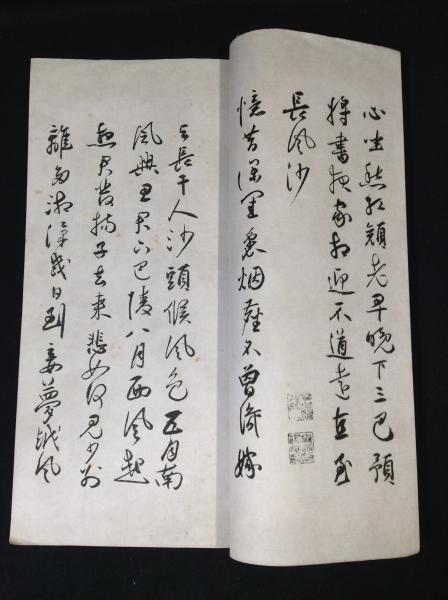 心坐愁紅顏老早晚下三巴預
將書報家相迎不道遠直至
長風沙
憶昔深閨裏烟塵不曾識嫁
與長干人沙頭候風色五月南
風興思君下巴陵八月西風起
想君發揚子去來悲如何見少別
離多湘潭幾日到妾夢越風